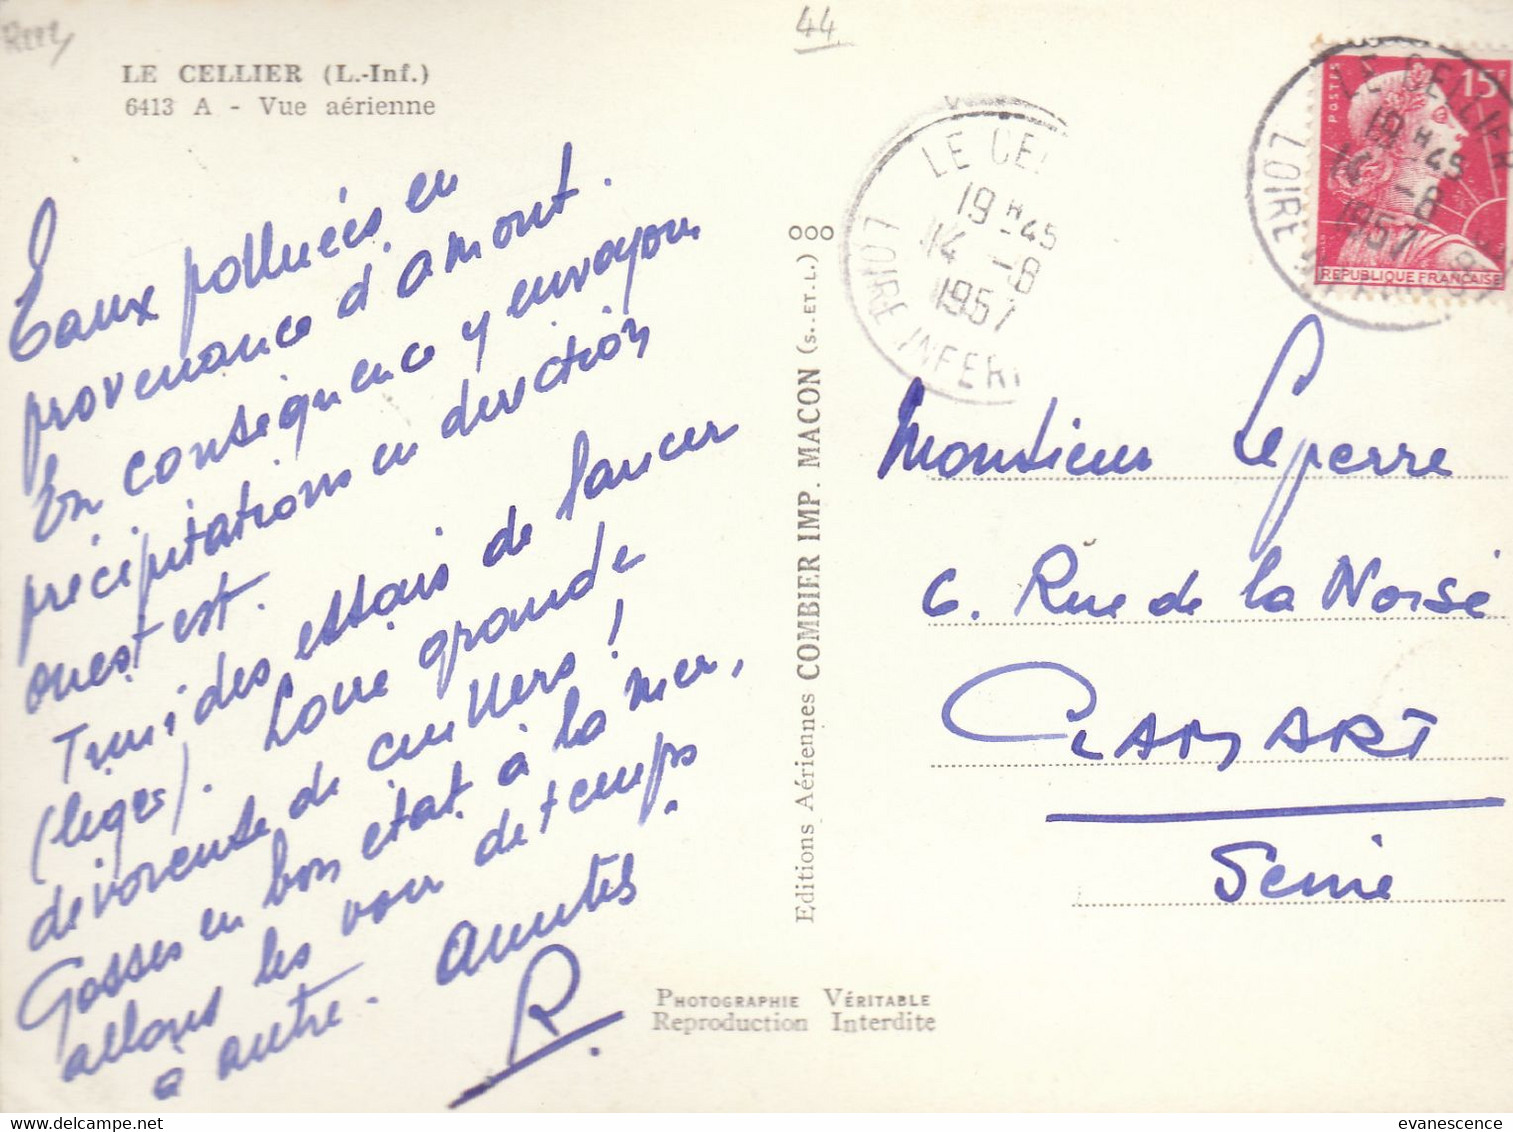 44
LE CELLIER (L.-Inf.)
6413 A - Vue aérienne
Eaux polluées en
provenance d'amont.
En conséquence y envoyons
précipitations en direction
ouest est.
des essais de lancer
(léger). Loire grande
dévoreuse de cuillers !
Gosses en bon état à la mer,
allons les voir de temps
à autre. Amitiés
R.
Editions Aériennes COMBIER IMP. MACON (S.-ET-L.)
LE CEL
19H45
14-8
1957
LOIRE INFERI
POSTES
15F
REPUBLIQUE FRANÇAISE
LE CELLIER
19H45
14-8
1957
LOIRE
Monsieur Leperre
6. Rue de la Noisé
CLAMART
Seine
PHOTOGRAPHIE VÉRITABLE
Reproduction Interdite
evanescence